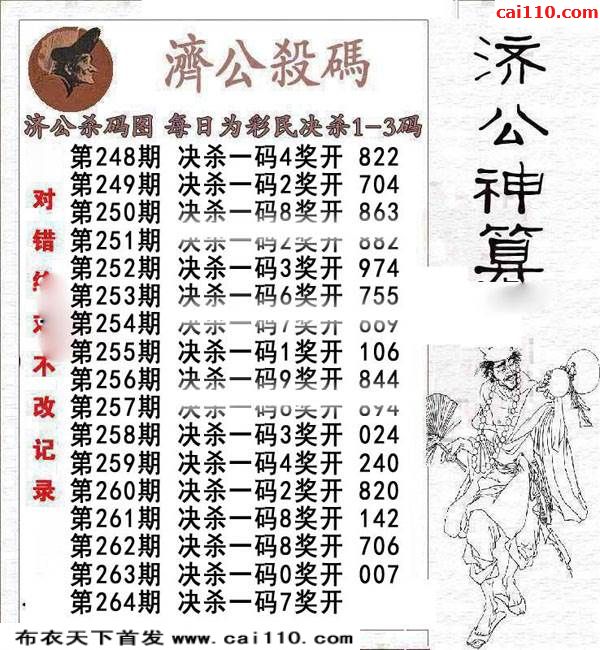 cai110.com
濟公殺碼
济公杀码图 每日为彩民决杀1-3码
第248期 决杀一码4奖开 822
第249期 决杀一码2奖开 704
第250期 决杀一码8奖开 863
第251期 决杀一码2奖开 882
第252期 决杀一码3奖开 974
第253期 决杀一码6奖开 755
第254期 决杀一码7奖开
第255期 决杀一码1奖开 106
第256期 决杀一码9奖开 844
第257期 决杀一码 奖开 894
第258期 决杀一码3奖开 024
第259期 决杀一码4奖开 240
第260期 决杀一码2奖开 820
第261期 决杀一码8奖开 142
第262期 决杀一码8奖开 706
第263期 决杀一码0奖开 007
第264期 决杀一码7奖开
对错 不改记录
济公神算
布衣天下首发 www.cai110.com